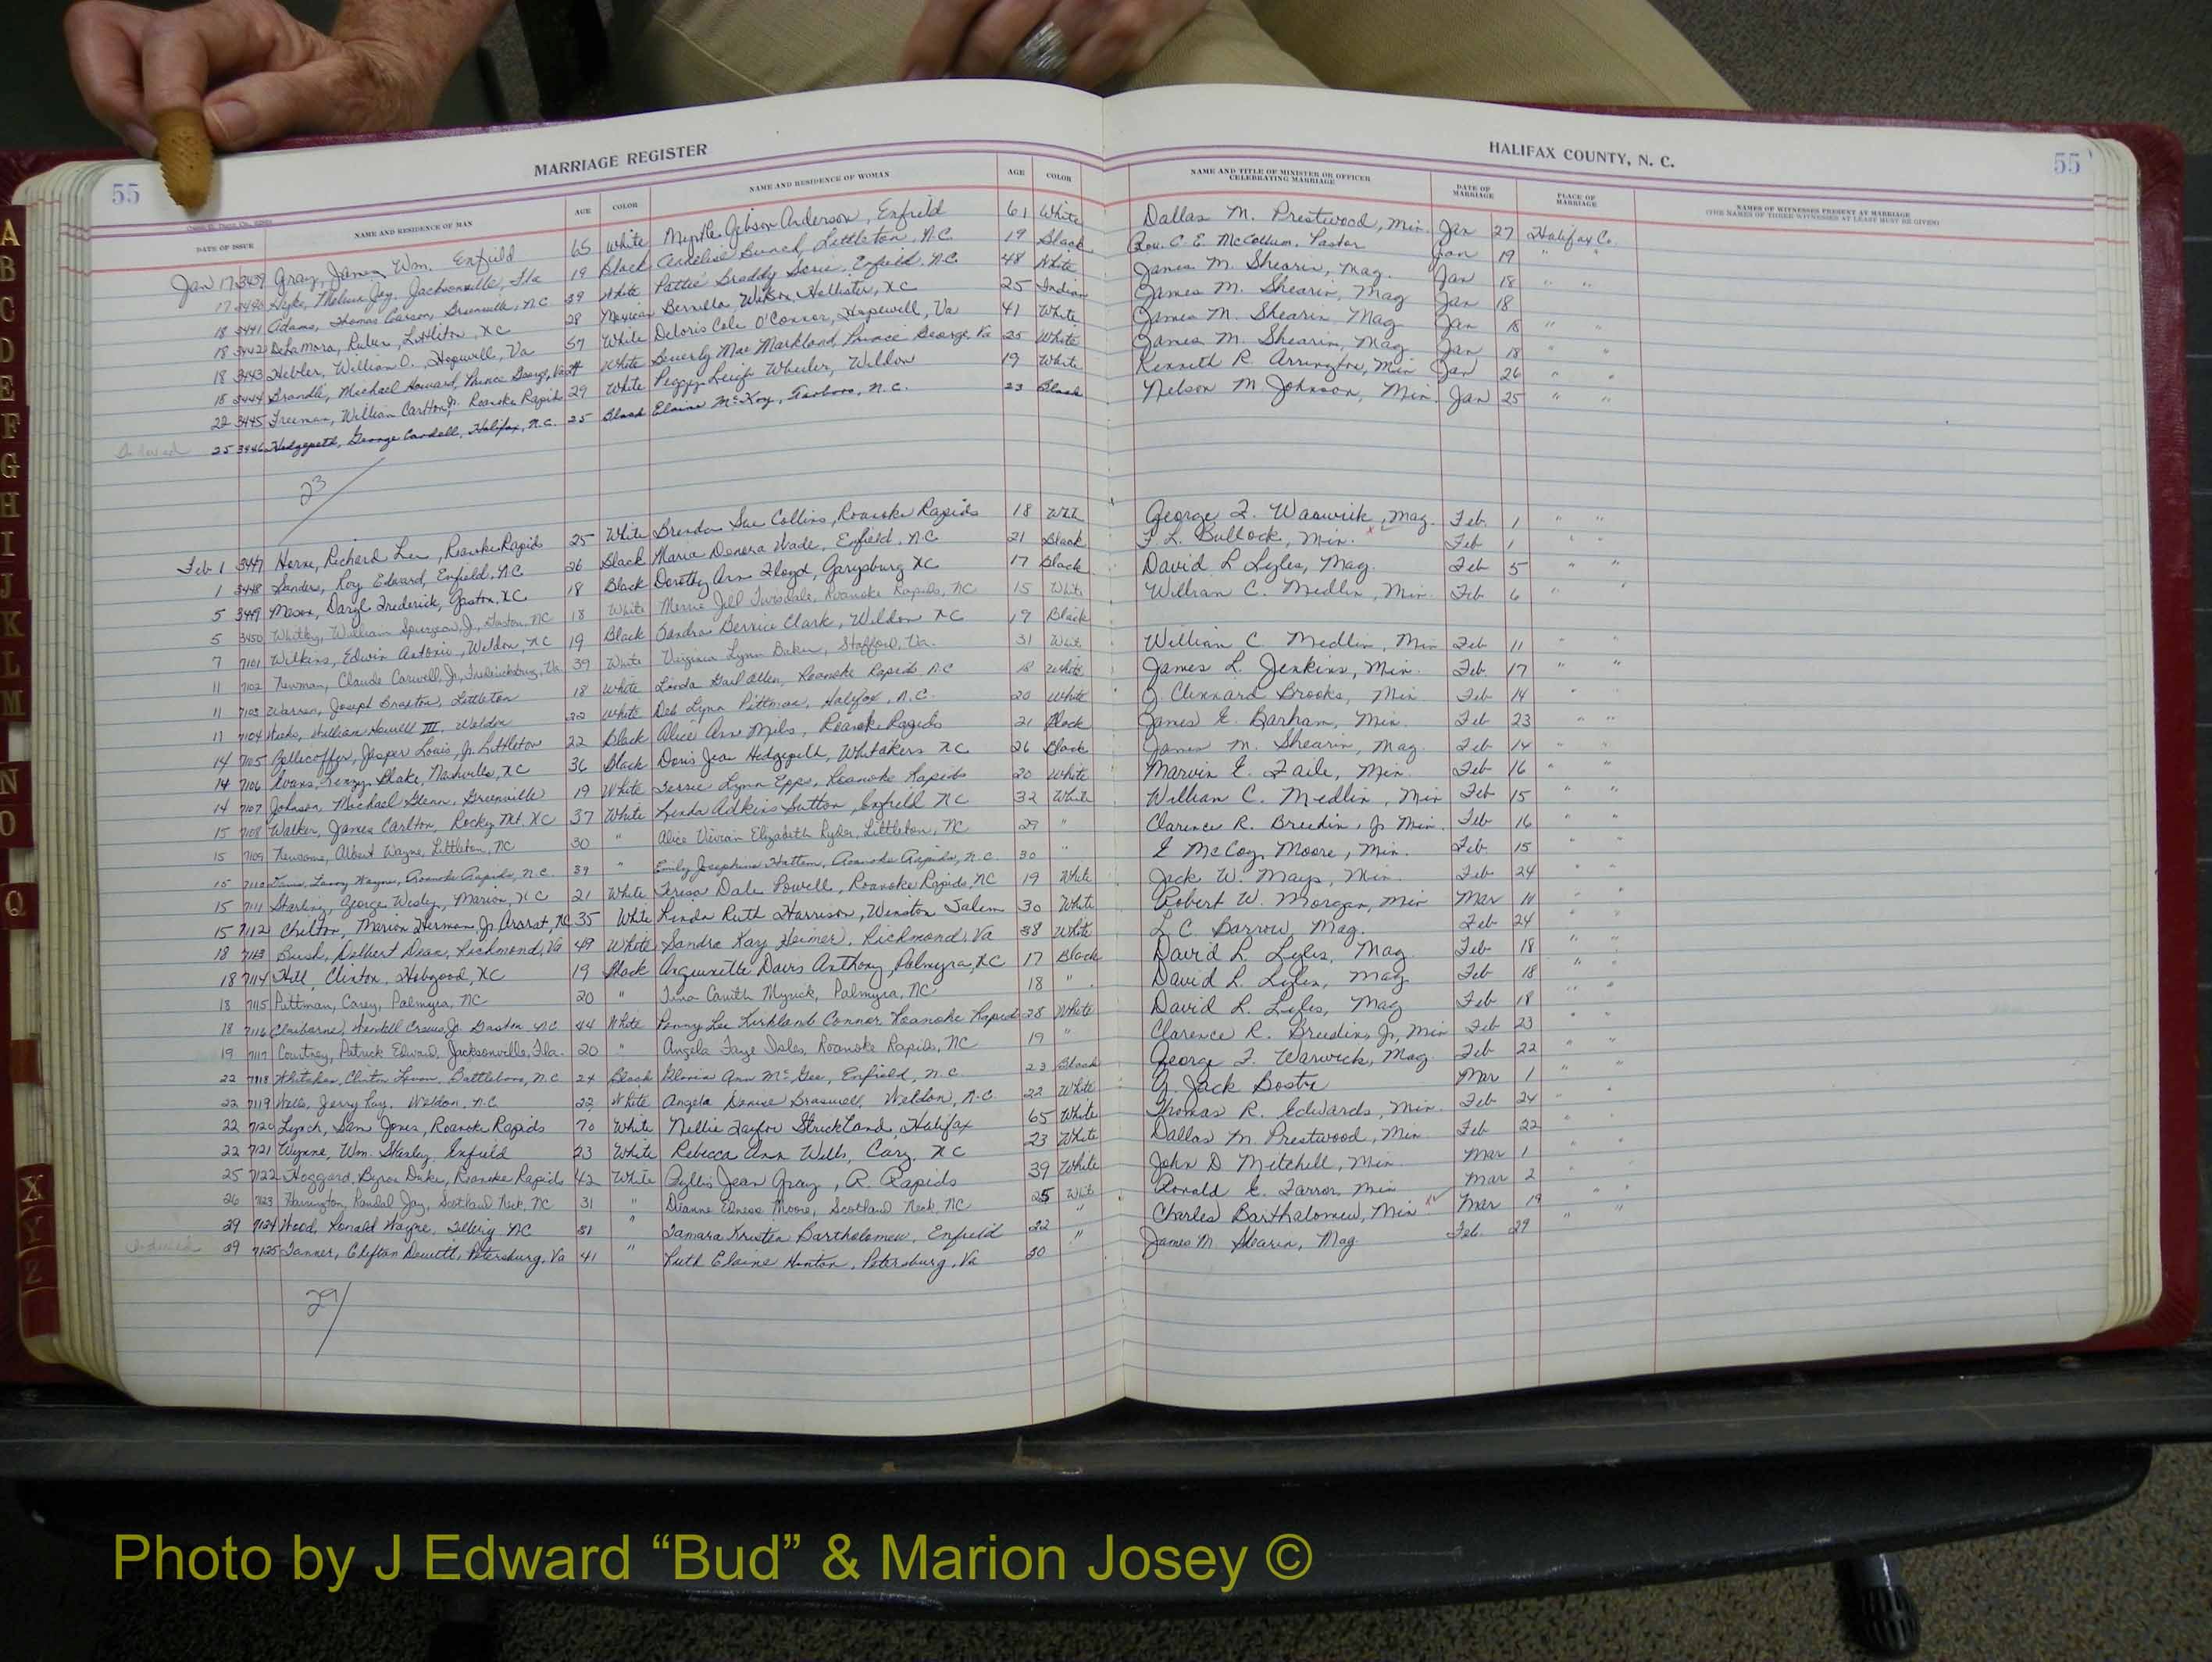 MARRIAGE REGISTER
HALIFAX COUNTY, N. C.
55
55
DATE OF ISSUE NAME AND RESIDENCE OF MAN AGE COLOR NAME AND RESIDENCE OF WOMAN AGE COLOR NAME AND TITLE OF MINISTER OR OFFICER CELEBRATING MARRIAGE DATE OF MARRIAGE PLACE OF MARRIAGE NAMES OF WITNESSES PRESENT AT MARRIAGE (THE NAMES OF THREE WITNESSES AT LEAST MUST BE GIVEN)
Jan 17 3439 Gray, James Wm. Enfield 65 White Myrtle Gibson Anderson, Enfield 61 White Dallas M. Prestwood, Min. Jan 27 Halifax Co.
17 3440 Jacksonville, Fla 19 Black Bunch, Littleton, N.C. 19 Black Rev. C. E. McCollum, Pastor Jan 19 " "
18 3441 Adams, Thomas Carson, Greenville, NC 39 White Pattie Braddy Enfield, N.C. 48 White James M. Shearin, Mag. Jan 18 " "
18 3442 DeLaMora, Ruben, Littleton, NC 28 Mexican Hollister, NC 25 Indian James M. Shearin, Mag Jan 18
18 3443 Hebler, William O., Hopewell, Va 57 White Deloris Cole O'Connor, Hopewell, Va 41 White James M. Shearin Mag Jan 18 " "
18 3444 Michael Howard, Prince George, Va White Beverly Mae Markland, Prince George, Va 25 White James M. Shearin, Mag Jan 18 " "
22 3445 Freeman, William Carlton, Jr. Roanoke Rapids 29 White Peggy Leigh Wheeler, Weldon 19 White Kenneth R. Arrington, Min Jan 26 " "
25 3446 Hedgepeth, George Cordell, Halifax, N.C. 25 Black Elaine McKoy, Tarboro, N.C. 23 Black Nelson M. Johnson, Min. Jan 25 " "
23
Feb 1 3447 Horne, Richard Lee, Roanoke Rapids 25 White Brenda Sue Collins, Roanoke Rapids 18 George F. Warwick, Mag. Feb. 1 " "
1 3448 Sanders, Roy Edward, Enfield, N.C 26 Black Maria Wade, Enfield, N.C 21 Black F. L. Bullock, Min. Feb 1 " "
5 3449 Mason, Daryl Frederick, Gaston, NC 18 Black Dorothy Ann Floyd, Garysburg NC 17 Black David L Lyles, Mag. Feb 5 " "
5 3450 Whitley, William Spurgeon, Jr., Gaston, NC 18 White Jill Roanoke Rapids, NC 15 White William C. Medlin, Min Feb 6 "
7 7101 Wilkins, Edwin Antonio, Weldon, NC 19 Black Sandra Bernice Clark, Weldon NC 19 Black
11 7102 Newman, Claude Carwell, Jr., Fredericksburg, Va 39 White Virginia Lynn Baker, Stafford, Va. 31 White William C Medlin, Min Feb 11 " "
11 7103 Warren, Joseph Braxton, Littleton 18 White Linda Gail Allen, Roanoke Rapids N.C 18 White James L. Jenkins, Min. Feb. 17 " "
11 7104 William Howell III, Weldon 22 White Deb Lynn Pittman, Halifax, N.C. 20 White J. Clinnard Brooks, Min Feb 14 " "
14 7105 Jasper Louis, Jr. Littleton 22 Black Alice Ann Roanoke Rapids 21 Black James E. Barham, Min. Feb 23 " "
14 7106 Evans, Blake, Nashville, NC 36 Black Doris Jean Hedgepeth, Whitakers NC 26 Black James M. Shearin, Mag Feb 14 " "
14 7107 Johnson, Michael Glenn, Greenville 19 White Terrie Lynn Epps, Roanoke Rapids 20 White Marvin E. Faile, Min. Feb 16 " "
15 7108 Walker, James Carlton, Rocky Mt. NC 37 White Linda Adkins Sutton, Enfield NC 32 White William C. Medlin, Min Feb 15 " "
15 7109 Newsome, Albert Wayne, Littleton, NC 30 " Alice Vivian Elizabeth Ryder, Littleton, NC 29 " Clarence R. Breedin, Jr Min. Feb 16 " "
15 7110 Larry Wayne, Roanoke Rapids, N.C. 39 " Emily Josephine Roanoke Rapids, N.C. 30 " E McCoy Moore, Min. Feb 15 " "
15 7111 Starling, George Wesley, Marion, NC 21 White Teresa Dale Powell, Roanoke Rapids, NC 19 White Jack W. Mays, Min. Feb 24 " "
15 7112 Chilton, Marion Herman, Jr Ararat, NC 35 White Linda Ruth Harrison, Winston Salem 30 White Robert W. Morgan, Min Mar " "
18 7113 Bush, Delbert Dean, Richmond, Va 49 White Sandra Kay Heimer, Richmond, Va 38 White L. C. Barrow, Mag. Feb 24 " "
18 7114 Hill, Clinton, Hobgood, NC 19 Black Davis Anthony, Palmyra, NC 17 Black David L. Lyles, Mag Feb 18 " "
18 7115 Pittman, Carey, Palmyra, NC 20 " Tina Myrick, Palmyra, NC 18 " David L. Lyles, Mag Feb 18 " "
18 7116 Claiborne, Wendell Crews, Jr. Gaston NC 44 White Penny Lee Kirkland Conner Roanoke Rapids 28 White David L. Lyles, Mag Feb 18 " "
19 7117 Courtney, Patrick Edward, Jacksonville, Fla. 20 " Angela Faye Isles, Roanoke Rapids, NC 19 " Clarence R. Breedin, Jr, Min Feb 23 " "
22 7118 Whitaker, Clinton Battleboro, N.C 24 Black Gloria Ann McGee, Enfield, N.C. 23 Black George F. Warwick, Mag. Feb 22 " "
22 7119 Wells, Jerry Ray, Weldon, N.C 22 White Angela Denise Braswell, Weldon, N.C. 22 White G. Jack Mar 1 " "
22 7120 Lynch, Sam Jones, Roanoke Rapids 70 White Nellie Taylor Strickland, Halifax 65 White Thomas R. Edwards, Min. Feb 24 " "
22 7121 Wynne, Wm. Stanley Enfield 23 White Rebecca Ann Wells, Cary, NC 23 White Dallas M. Prestwood, Min. Feb 22 " "
25 7122 Hoggard, Byron Duke, Roanoke Rapids 42 White Phyllis Jean Gray, R. Rapids 39 White John D. Mitchell, Min. Mar 1 " "
26 7123 Harrington, Randal Jay, Scotland Neck, NC 31 " Dianne Moore, Scotland Neck, NC 25 White Ronald E. Min Mar 2 " "
29 7124 Wood, Ronald Wayne, NC 31 " Tamara Kristen Bartholomew, Enfield 22 " Charles Bartholomew, Min Mar 19 " "
29 7125 Tanner, Clifton Dewitt, Petersburg, Va 41 " Ruth Elaine Hinton, Petersburg, Va 30 " James M Shearin, Mag. Feb. 29 " "
29
A
B
C
D
E
F
G
H
I
J
K
L
M
N
O
Q
X
Y
Z
Photo by J Edward “Bud” & Marion Josey ©